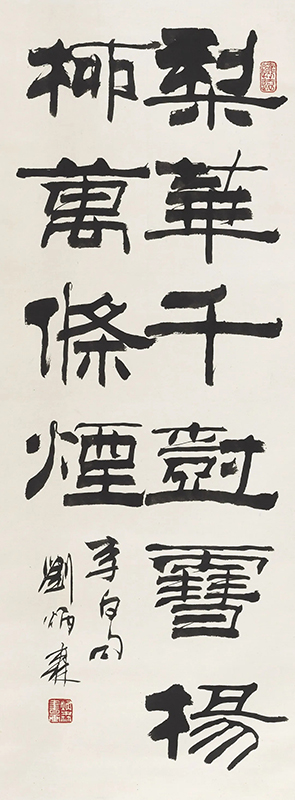 梨華千尌雪楊
柳萬條煙
李白句
劉炳森